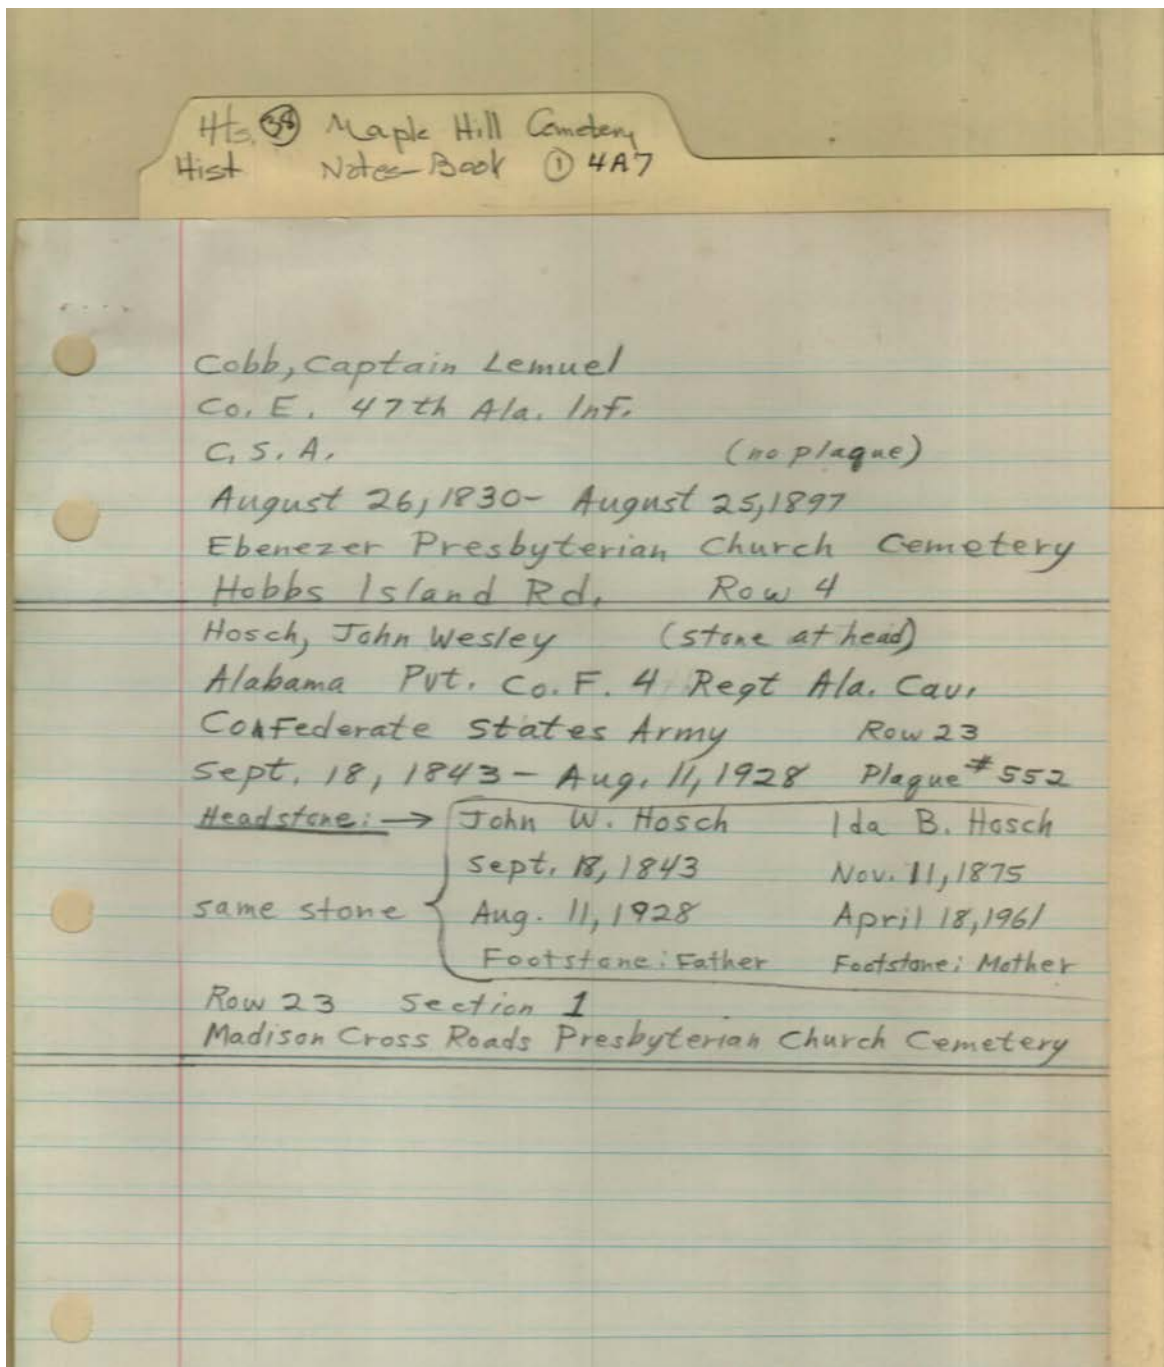 Hts. 38 Maple Hill Cemetery
Hist Notes-Book 1 4A7
Cobb, Captain Lemuel
Co. E. 47th Ala. Inf.
C. S. A. (no plaque)
August 26, 1830 - August 25, 1897
Ebenezer Presbyterian Church Cemetery
Hobbs Island Rd. Row 4
Hosch, John Wesley (stone at head)
Alabama Pvt. Co. F. 4 Regt Ala. Cav.
Confederate States Army Row 23
Sept. 18, 1843 - Aug. 11, 1928 Plaque # 552
Headstone: → John W. Hosch Ida B. Hosch
Sept. 18, 1843 Nov. 11, 1875
same stone { Aug. 11, 1928 April 18, 1961
Footstone: Father Footstone: Mother
Row 23 Section 1
Madison Cross Roads Presbyterian Church Cemetery